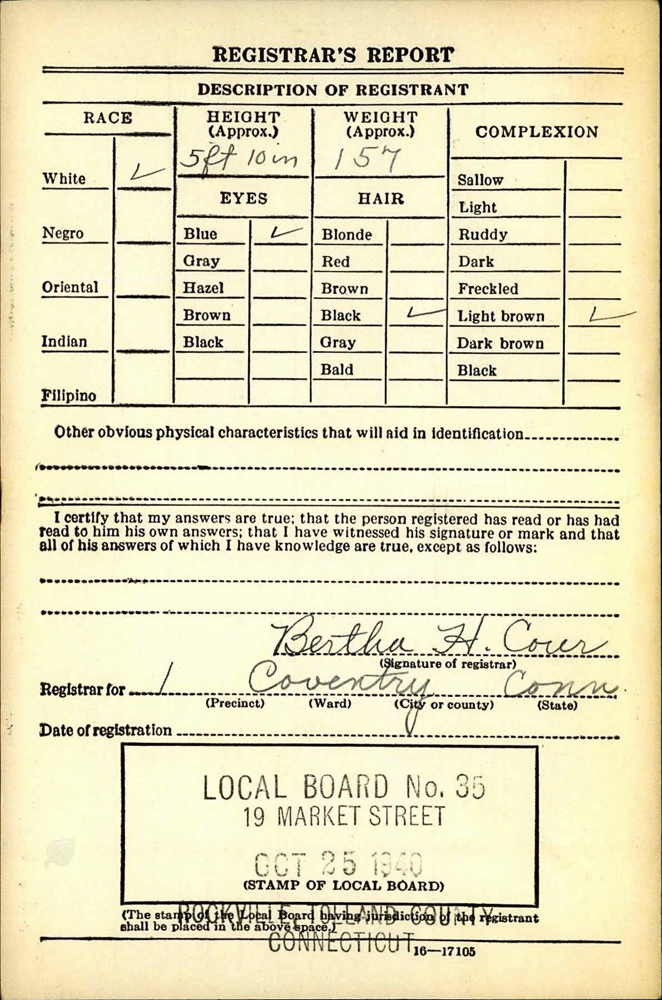 REGISTRAR'S REPORT
DESCRIPTION OF REGISTRANT
RACE
HEIGHT (Approx.)
WEIGHT (Approx.)
COMPLEXION
5ft 10 in
157
White ✓
Sallow
EYES
HAIR
Light
Negro
Blue ✓
Blonde
Ruddy
Gray
Red
Dark
Oriental
Hazel
Brown
Freckled
Brown
Black ✓
Light brown ✓
Indian
Black
Gray
Dark brown
Bald
Black
Filipino
Other obvious physical characteristics that will aid in identification
I certify that my answers are true; that the person registered has read or has had
read to him his own answers; that I have witnessed his signature or mark and that
all of his answers of which I have knowledge are true, except as follows:
Bertha H. Cour
(Signature of registrar)
Registrar for 1 Coventry Conn.
(Precinct) (Ward) (City or county) (State)
Date of registration
LOCAL BOARD No. 35
19 MARKET STREET
OCT 25 1940
(STAMP OF LOCAL BOARD)
ROCKVILLE, TOLLAND COUNTY
(The stamp of the Local Board having jurisdiction of the registrant
shall be placed in the above space.)
CONNECTICUT
16—17105